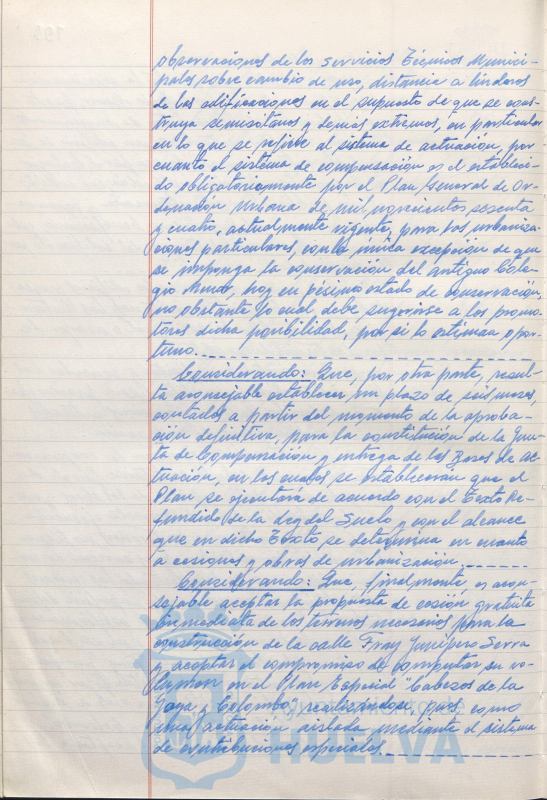 observaciones de los servicios Técnicos Munici-
pales sobre cambio de uso, distancia a linderos
de las edificaciones en el supuesto de que se cons-
truya semisótanos y demás extremos, en particular
en lo que se refiere al sistema de actuación, por
cuanto el sistema de compensación es el estableci-
do obligatoriamente por el Plan General de Or-
denación Urbana de mil novecientos sesenta
y cuatro, actualmente vigente, para las urbaniza-
ciones particulares, con la única excepción de que
se imponga la conservación del antiguo Cole-
gio, hoy en pésimo estado de conservación,
no obstante lo cual debe sugerirse a los promo-
tores dicha posibilidad, por si lo estiman opor-
tuno.
Considerando: Que, por otra parte, resul-
ta aconsejable establecer un plazo de seis meses,
contados a partir del momento de la aproba-
ción definitiva, para la constitución de la Jun-
ta de Compensación y entrega de las Bases de ac-
tuación, en los cuales se establecerán que el
Plan se ejecutará de acuerdo con el Texto Re-
fundido de la Ley del Suelo y con el alcance
que en dicho Texto se determina en cuanto
a cesiones y obras de urbanización.
Considerando: Que, finalmente, es acon-
sejable aceptar la propuesta de cesión gratuita
e inmediata de los terrenos necesarios para la
construcción de la calle Fray Junípero Serra
y aceptar el compromiso de computar su vo-
lumen en el Plan Especial "Cabezos de la
Joya y Colombo", realizándose, pues, como
una actuación aislada mediante el sistema
de contribuciones especiales.
HUELVA